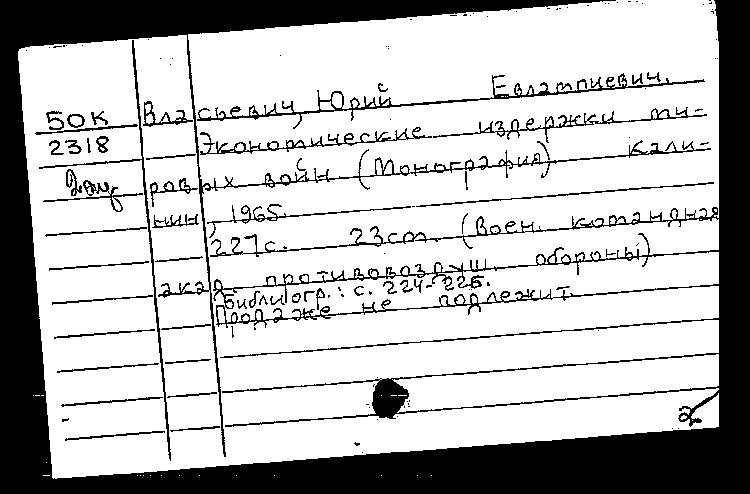 50К Власьевич, Юрий Евлатпиевич.
2318 Экономические издержки ми-
ровых войн (Монография) Кали-
нин, 1965.
227с. 23cm. (Воен. командная
акад. противовоздуш. обороны)
Библиогр.: с. 224-226.
Продаже не подлежит.
2